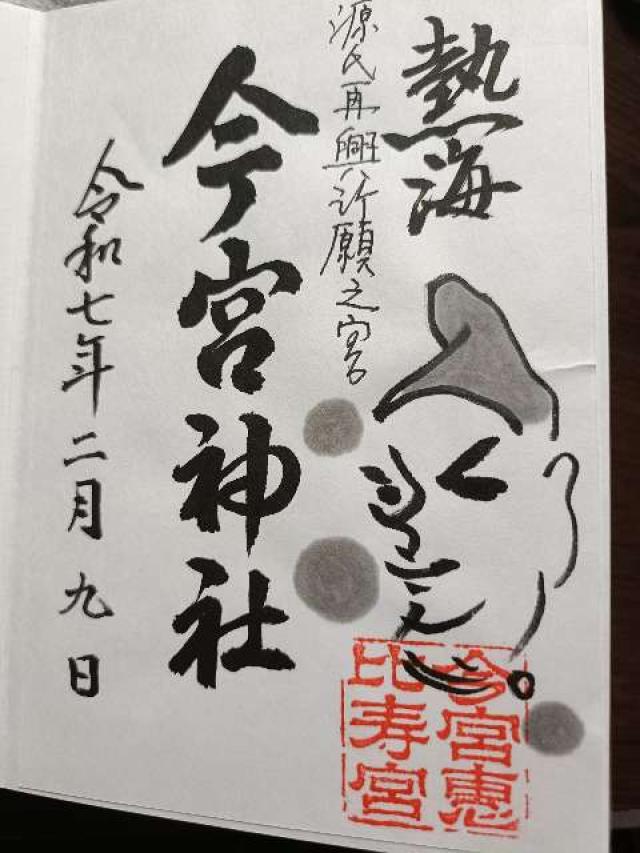 熱海
源氏再興祈願之宮
今宮神社
令和七年二月九日
今宮惠
比寿宮